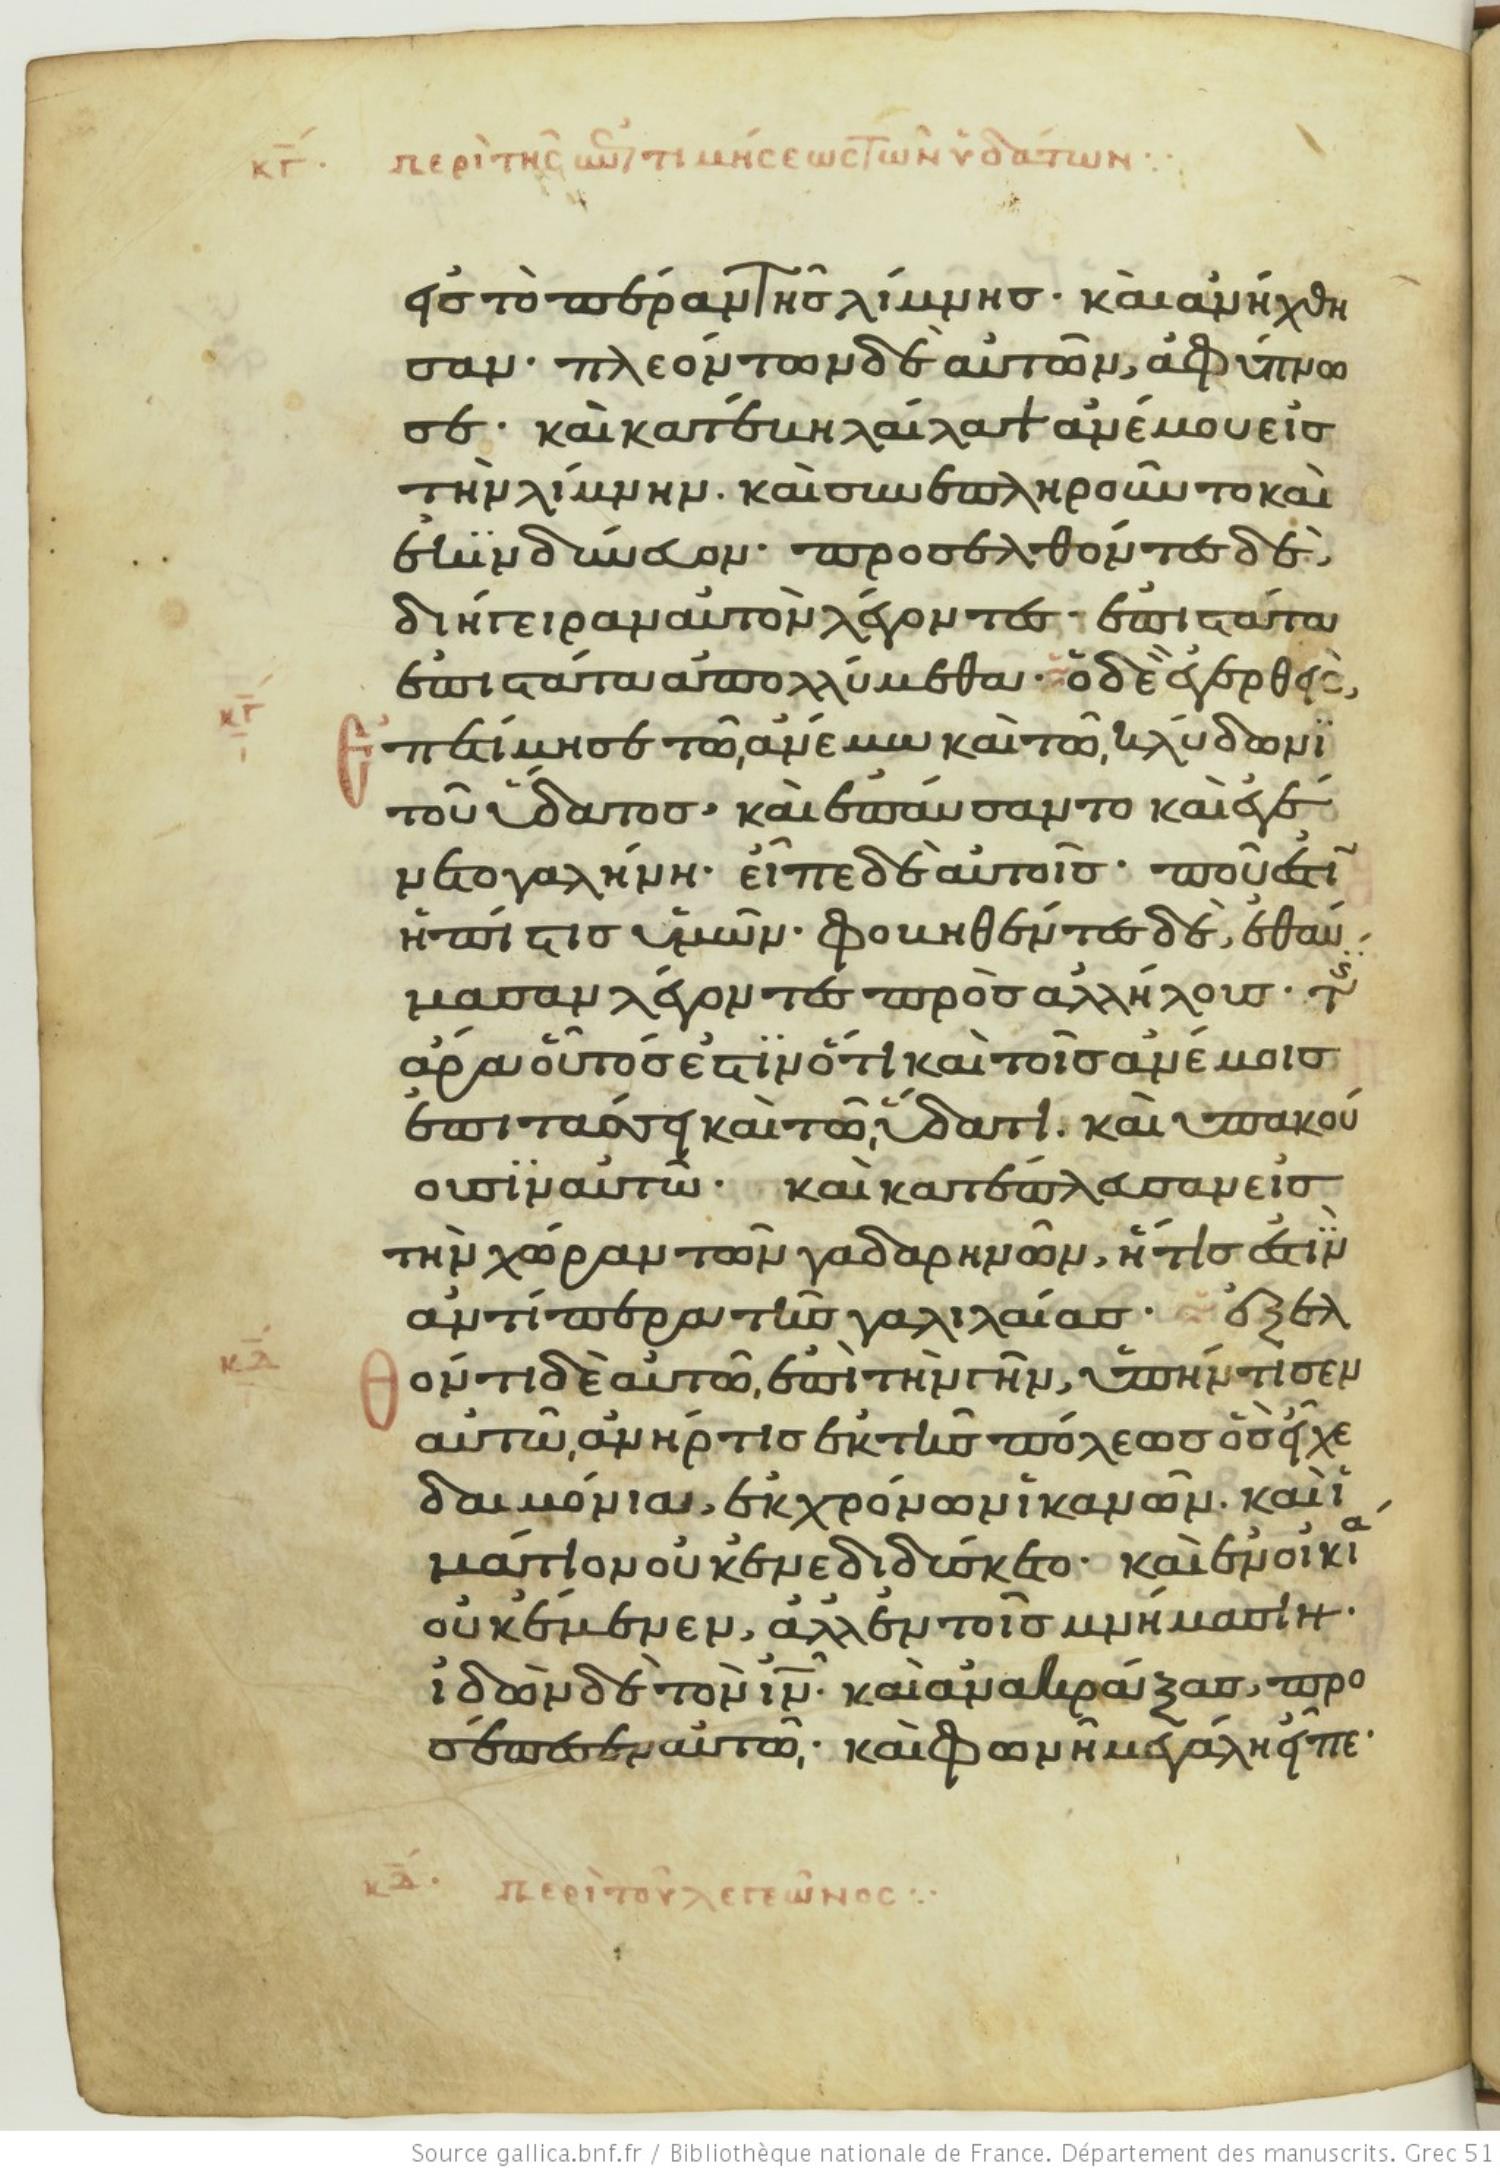 κγ´. περὶ τῆς ἐπιτιμήσεως τῶν ὑδάτων
εἰς τὸ πέραν τῆς λίμνης· καὶ ἀνήχθη
σαν· πλεόντων δὲ αὐτῶν, ἀφύπνω
σε· καὶ κατέβη λαίλαψ ἀνέμου εἰς
τὴν λίμνην. καὶ συνεπληροῦντο καὶ
ἐκϊνδύνευον· προσελθόντες δὲ,
διήγειραν αὐτὸν λέγοντες· ἐπιστάτα
ἐπιστάτα ἀπολλύμεθα· ὁ δὲ ἐγερθεὶς,
κγ
ἐπετίμησε τῶ ἀνέμω καὶ τῶ κλύδωνϊ
τοῦ ὕδατος, καὶ ἐπαύσαντο καὶ ἐγέ
νετο γαλήνη· εἶπε δὲ αὐτοῖς· ποῦ ἐστὶν
ἡ πίστις ὑμῶν· φοβηθέντες δὲ, ἐθαύ
μασαν λέγοντες πρὸς ἀλλήλους· τίς
ἄρα οὗτός ἐστϊν ὅτι καὶ τοῖς ἀνέμοις
ἐπιτάσσει καὶ τῶ ὕδατι. καὶ ὑπακού
ουσϊν αὐτῶ· καὶ κατέπλευσαν εἰς
τὴν χώραν τῶν γαδαρηνῶν, ἥτις ἐστϊν
ἀντίπερα τῆς γαλιλαίας· ἐξελ
κδ
θόντι δὲ αὐτῶ ἐπὶ τὴν γῆν, ὑπήντισεν
αὐτῶ ἀνήρ τις ἐκ τῆς πόλεως ὃς εἶχε
δαιμόνια, ἐκ χρόνων ἱκανῶν. καὶ ἱ
μάτιον οὐκ ἐνεδιδύσκετο· καὶ ἐν οἰκία
οὐκ ἔμενεν, ἀλλ' ἐν τοῖς μνήμασιν·
ἰδὼν δὲ τὸν ιν· καὶ ἀνακράξας, προ
σέπεσεν αὐτῶ· καὶ φωνῆ μεγάλη εἶπε·
κδ´. περὶ τοῦ λεγεῶνος
Source gallica.bnf.fr / Bibliothèque nationale de France. Département des manuscrits. Grec 51